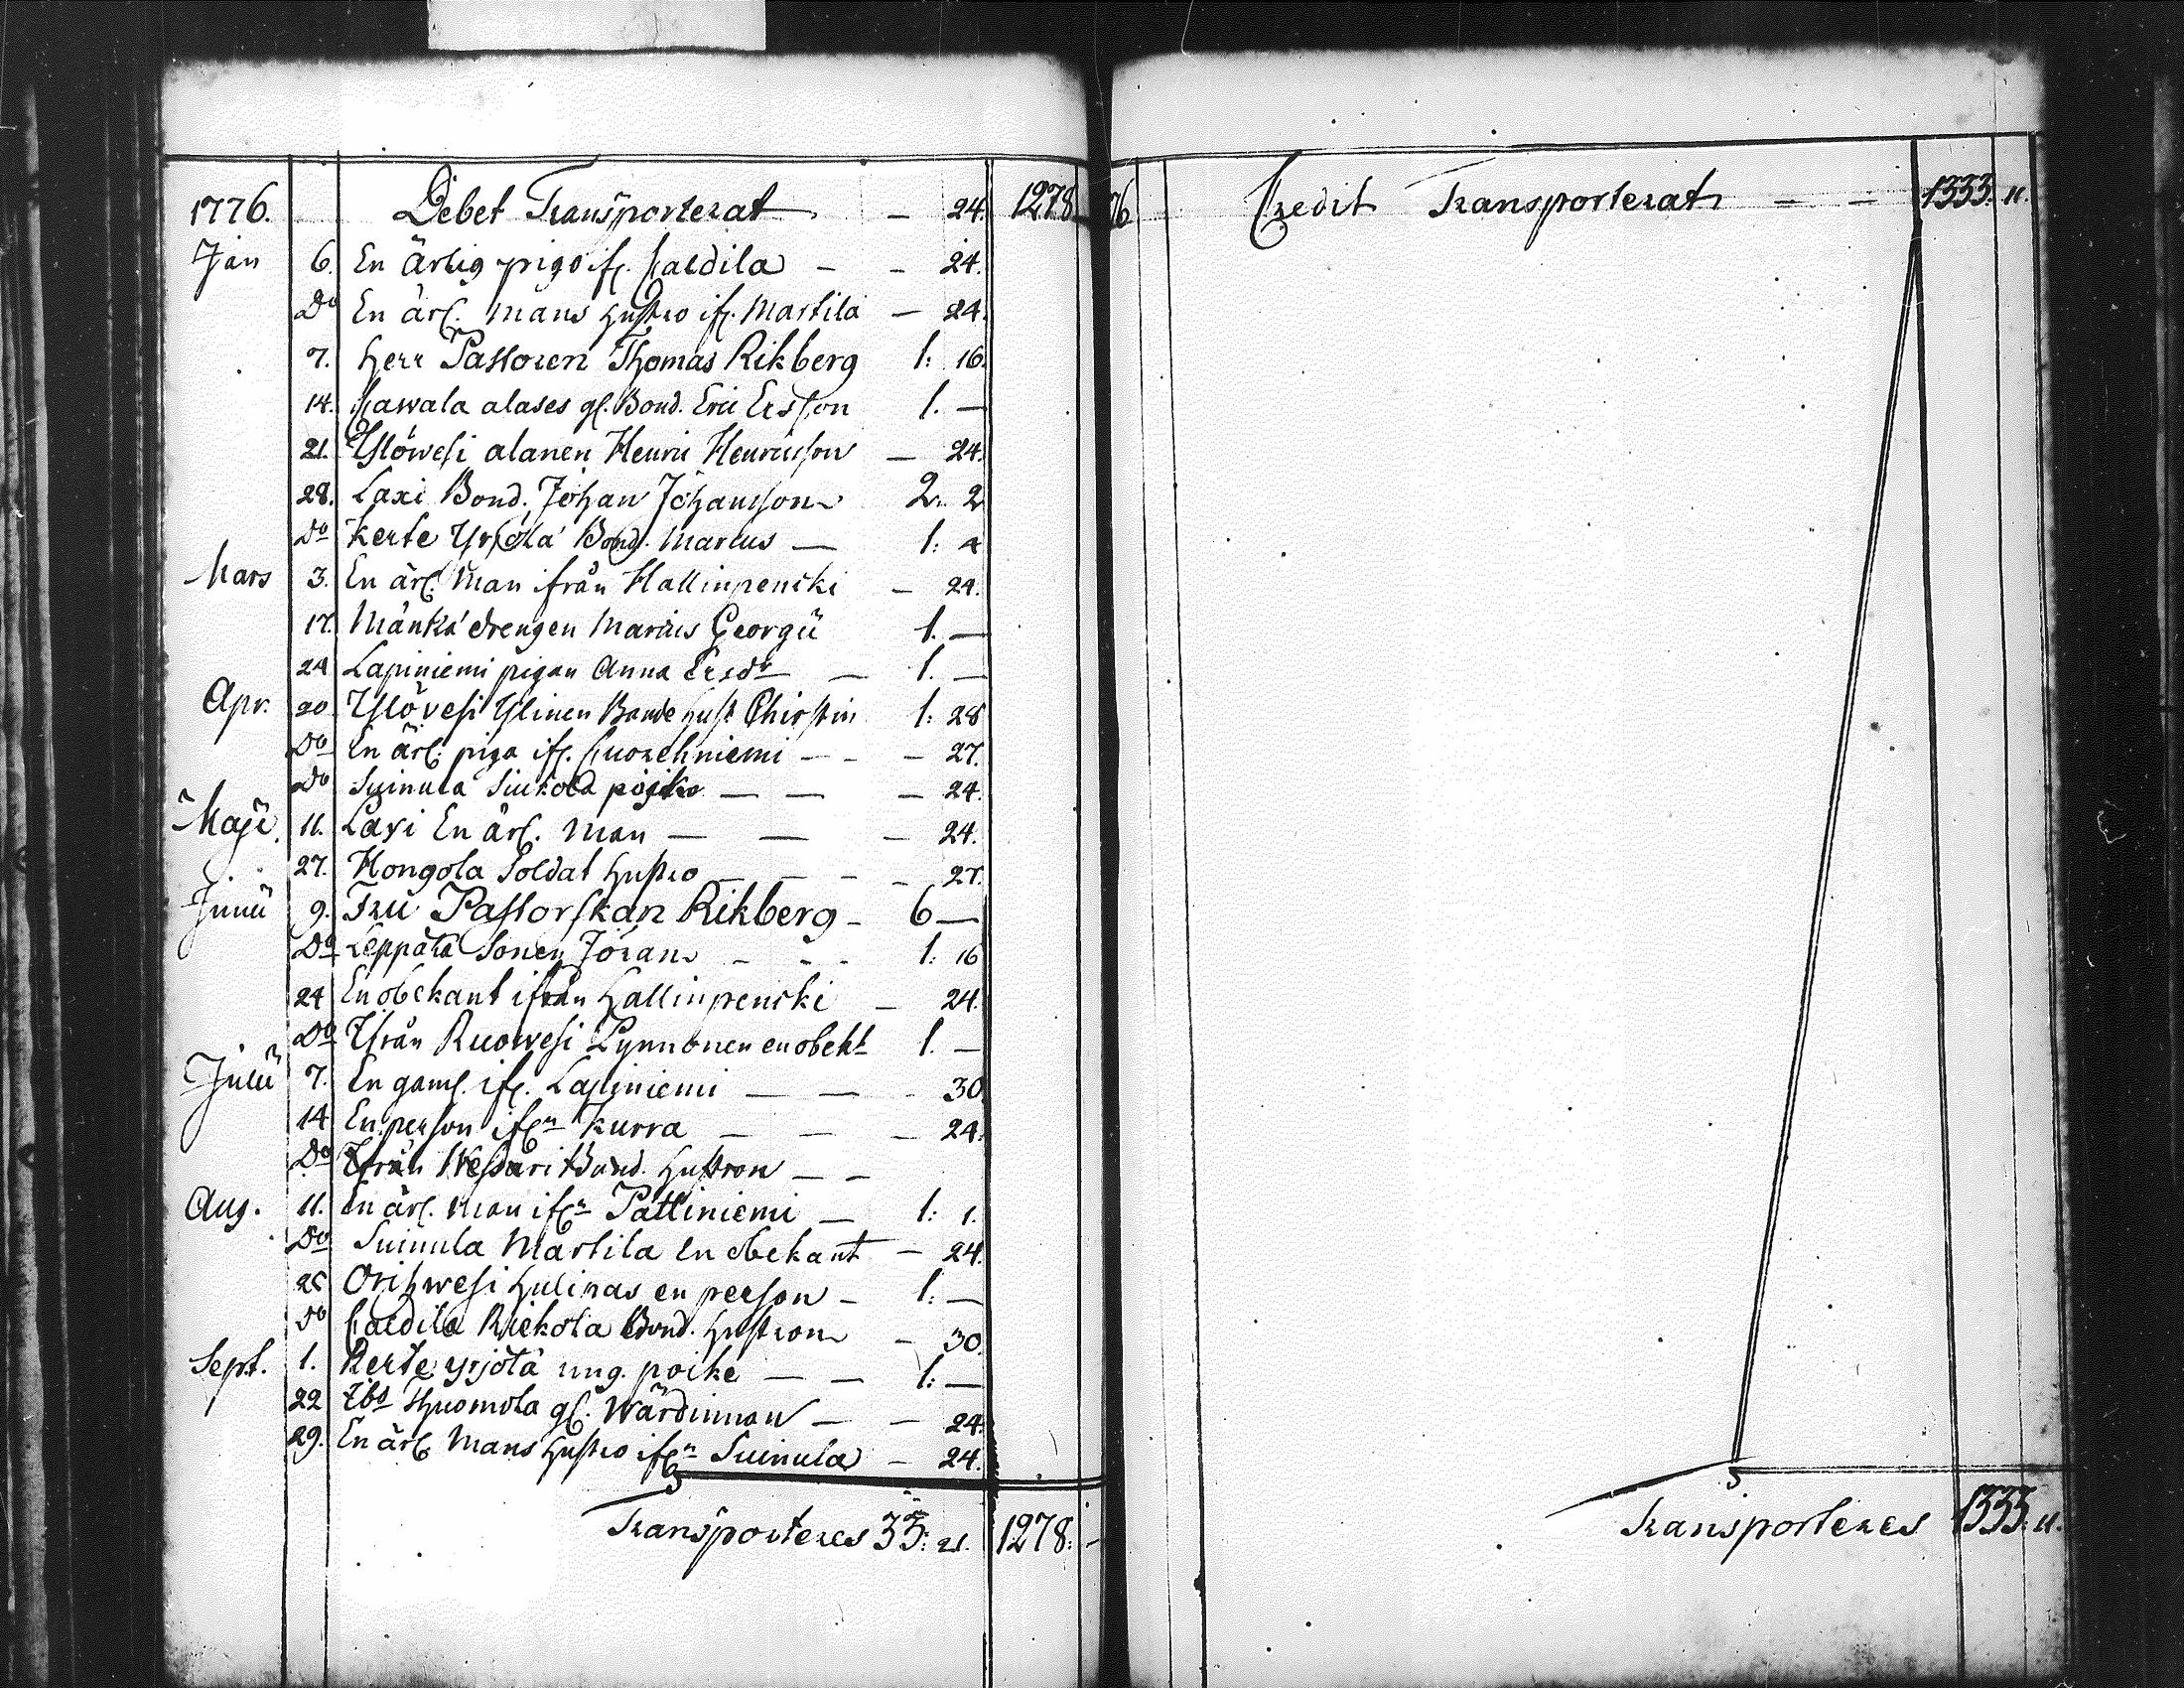 1776. Debet Transporterat — 24. 1278
Jan 6. En ärlig piga if. Saedila — — 24.
Do En ärl. mans hustro if. Martila — 24.
7. Herr Pastoren Thomas Rikberg 1: 16.
14. Sawala alases gl. Bond. Eric Ersson 1. —
21. Ylöwesi alanen Henric Henricsson — 24.
28. Laxi Bond. Johan Johansson 2. 2
Do Kerte Yrjölä Bond. Marcus — 1: 4
Mars 3. En ärl. Man ifrån Hallinpencki — 24.
17. Mänkä drengen Marcus Georgii 1. —
24 Lapiniemi pigan Anna Ersdr — 1. —
Apr. 20 Ylövesi Ylinen Bonde hust Christin 1: 28
Do En ärl. piga if. Suorehniemi — — — 27.
Do Suinula Siukola pojke — — — 24.
Maji 11. Laxi En ärl. Man — — — 24.
27. Hongola Soldat hustro — — — — 27.
Junii 9. Fru Pastorskan Rikberg — 6 —
Do Leppälä Sonen Jöran — — — 1: 16
24 En obekant ifrån Hallinpencki — 24.
Do Ifrån Ruowesi Lynnönen en obekt 1. —
Julii 7. En gaml. if. Lapiniemi — — — 30.
14 En person ifrn Kurra — — — 24.
Do Ifrån Wessari Bond. Hustron — —
Aug. 11. En ärl. Man ifrn Patliniemi — 1: 1.
Do Suinula Martila En obekant — 24.
25 Orihwesi Hulipas en person — 1: —
Do Saedila Riekola Bond. hustron — 30.
Sept. 1. Kerte yrjölä ung. poike — — 1: —
22 Ibd Thuomola gl. Wärdinnan — — 24.
29. En ärl. Mans hustro ifrn Suinula — 24.
Transporteres 33: 21. 1278: —
76 Credit Transporterat — — 1333. 11.
Transporteres 1333. 11.